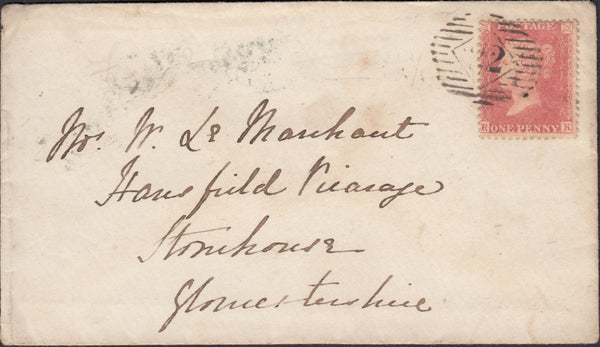 POSTAGE
2
ONE PENNY
Mrs. W. Le Marchant
Haresfield Vicarage
Stonehouse
Gloucestershire